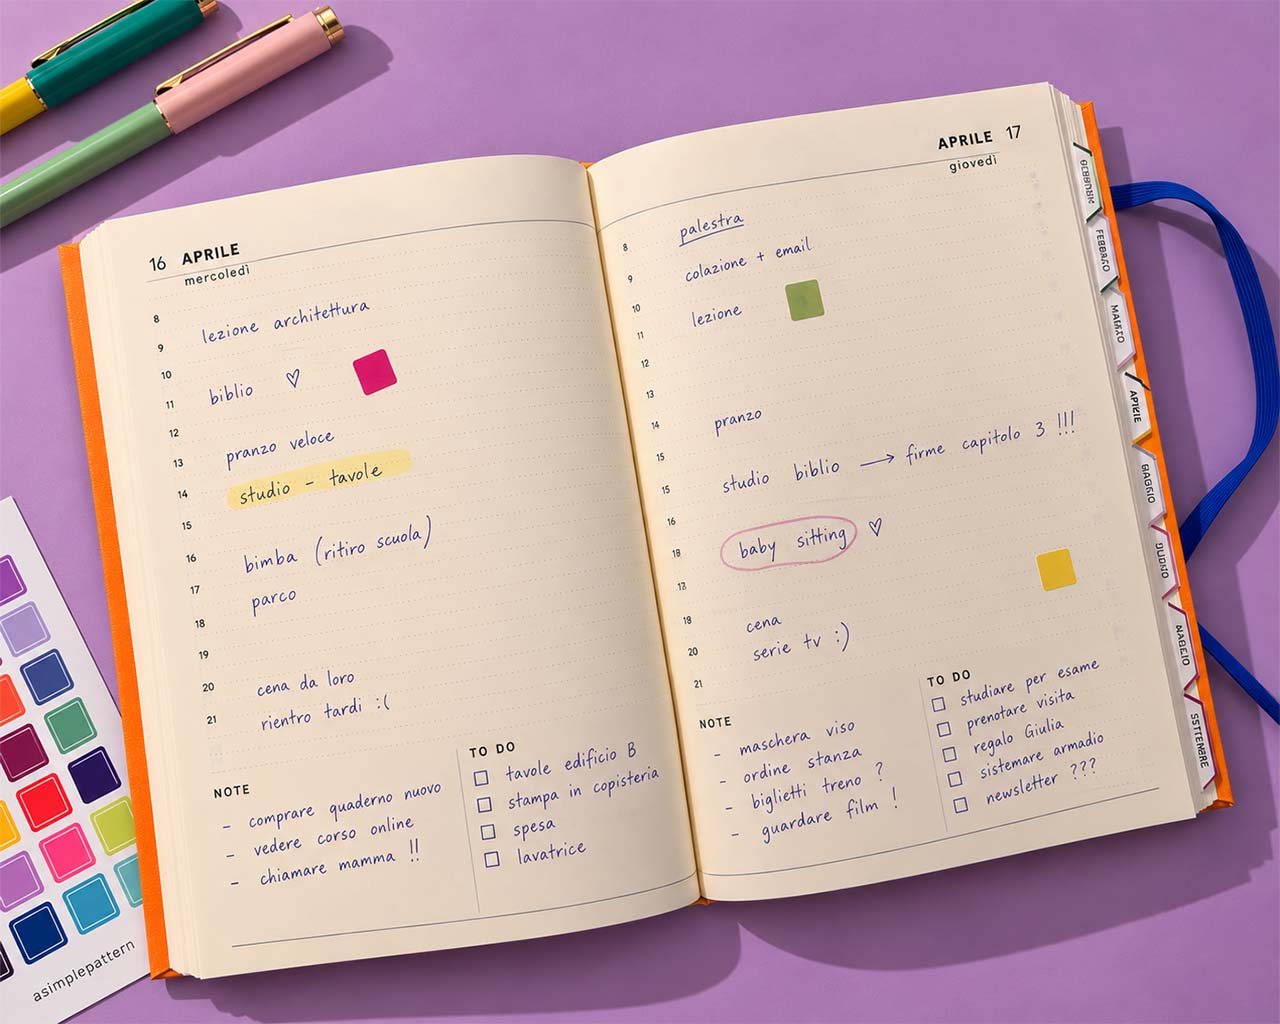 16 APRILE
mercoledì
8
lezione architettura
9
10
biblio ♡
11
12
pranzo veloce
13
studio - tavole
14
15
bimba (ritiro scuola)
16
17
parco
18
19
20
cena da loro
21
rientro tardi :(
NOTE
- comprare quaderno nuovo
- vedere corso online
- chiamare mamma !!
TO DO
tavole edificio B
stampa in copisteria
spesa
lavatrice
APRILE 17
giovedì
8
palestra
9
colazione + email
10
lezione
11
12
13
14
pranzo
15
studio biblio → firme capitolo 3 !!!
15
16
baby sitting ♡
18
18
cena
20
serie tv :)
21
NOTE
- maschera viso
- ordine stanza
- biglietti treno ?
- guardare film !
TO DO
studiare per esame
prenotare visita
regalo Giulia
sistemare armadio
newsletter ???
asimplepattern